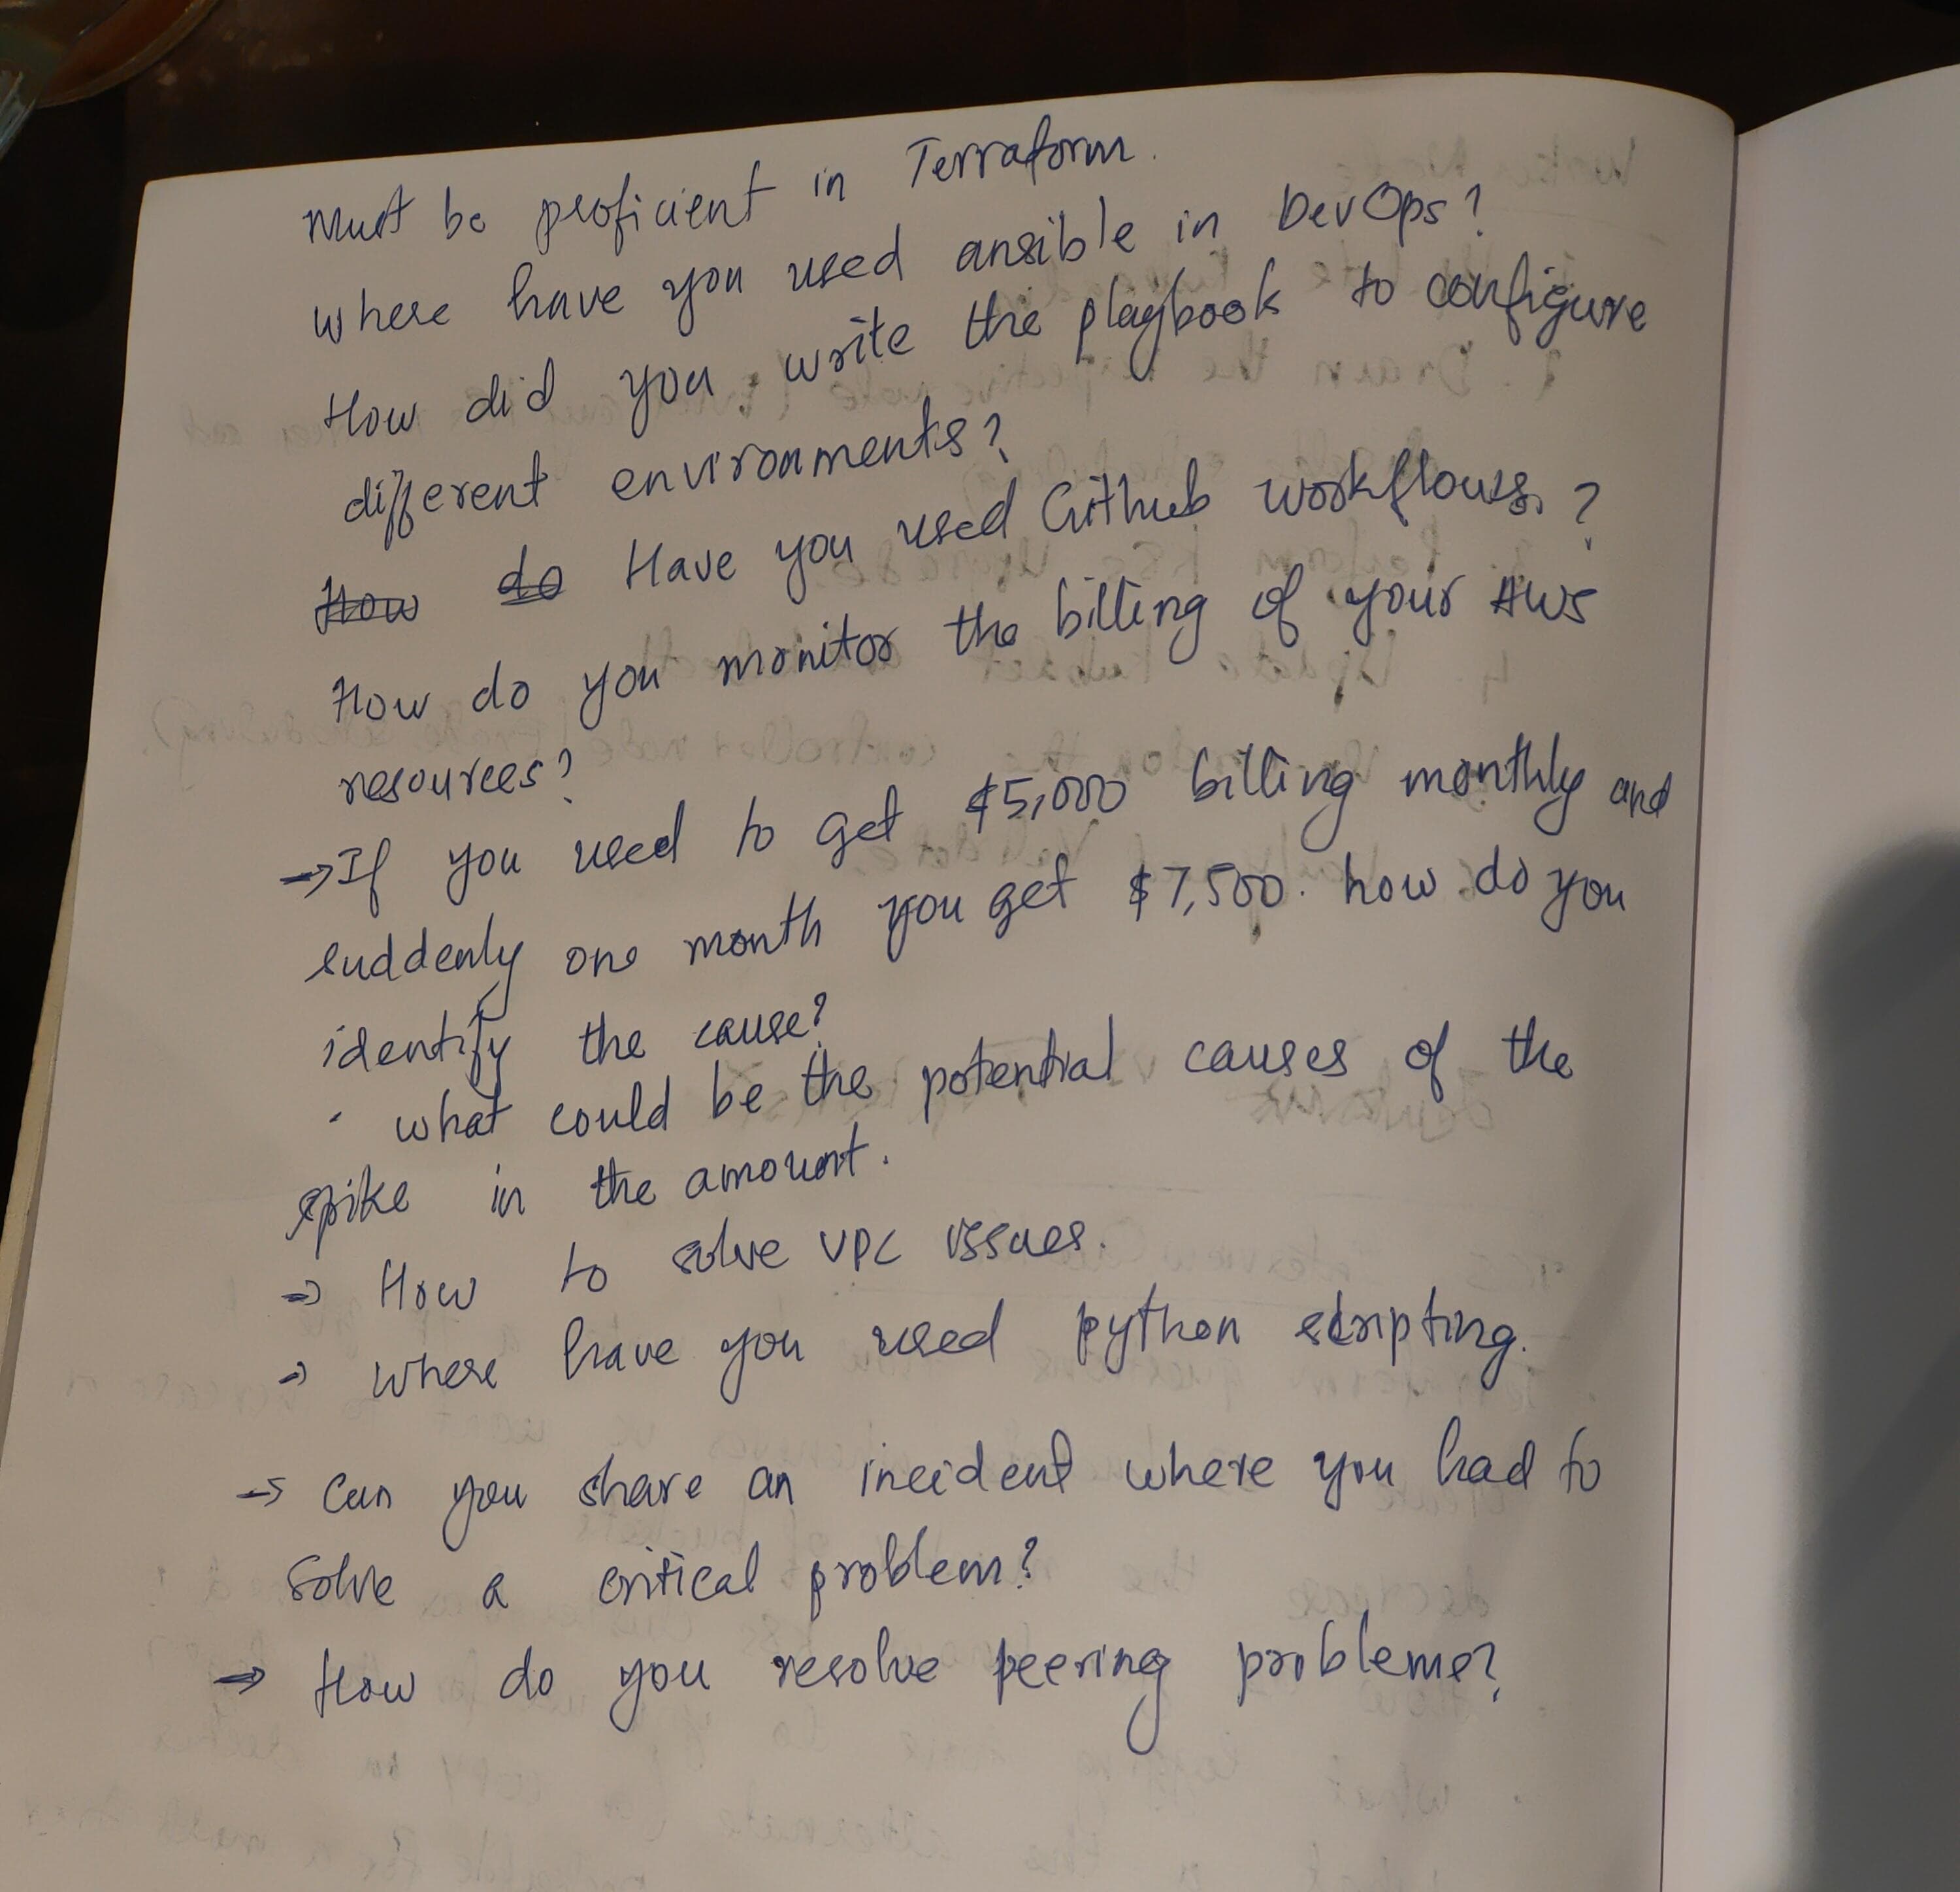 Must be proficient in Terraform.
where have you used ansible in DevOps?
How did you write the playbook to configure
different environments?
How do Have you used Github workflows. ?
How do you monitor the billing of your AWS
resources?
→ If you used to get $5,000 billing monthly and
suddenly one month you get $7,500. how do you
identify the cause?
· what could be the potential causes of the
spike in the amount.
→ How to solve VPC issues.
→ where have you used python scripting.
→ Can you share an incident where you had to
solve a critical problem?
→ How do you resolve peering problems?